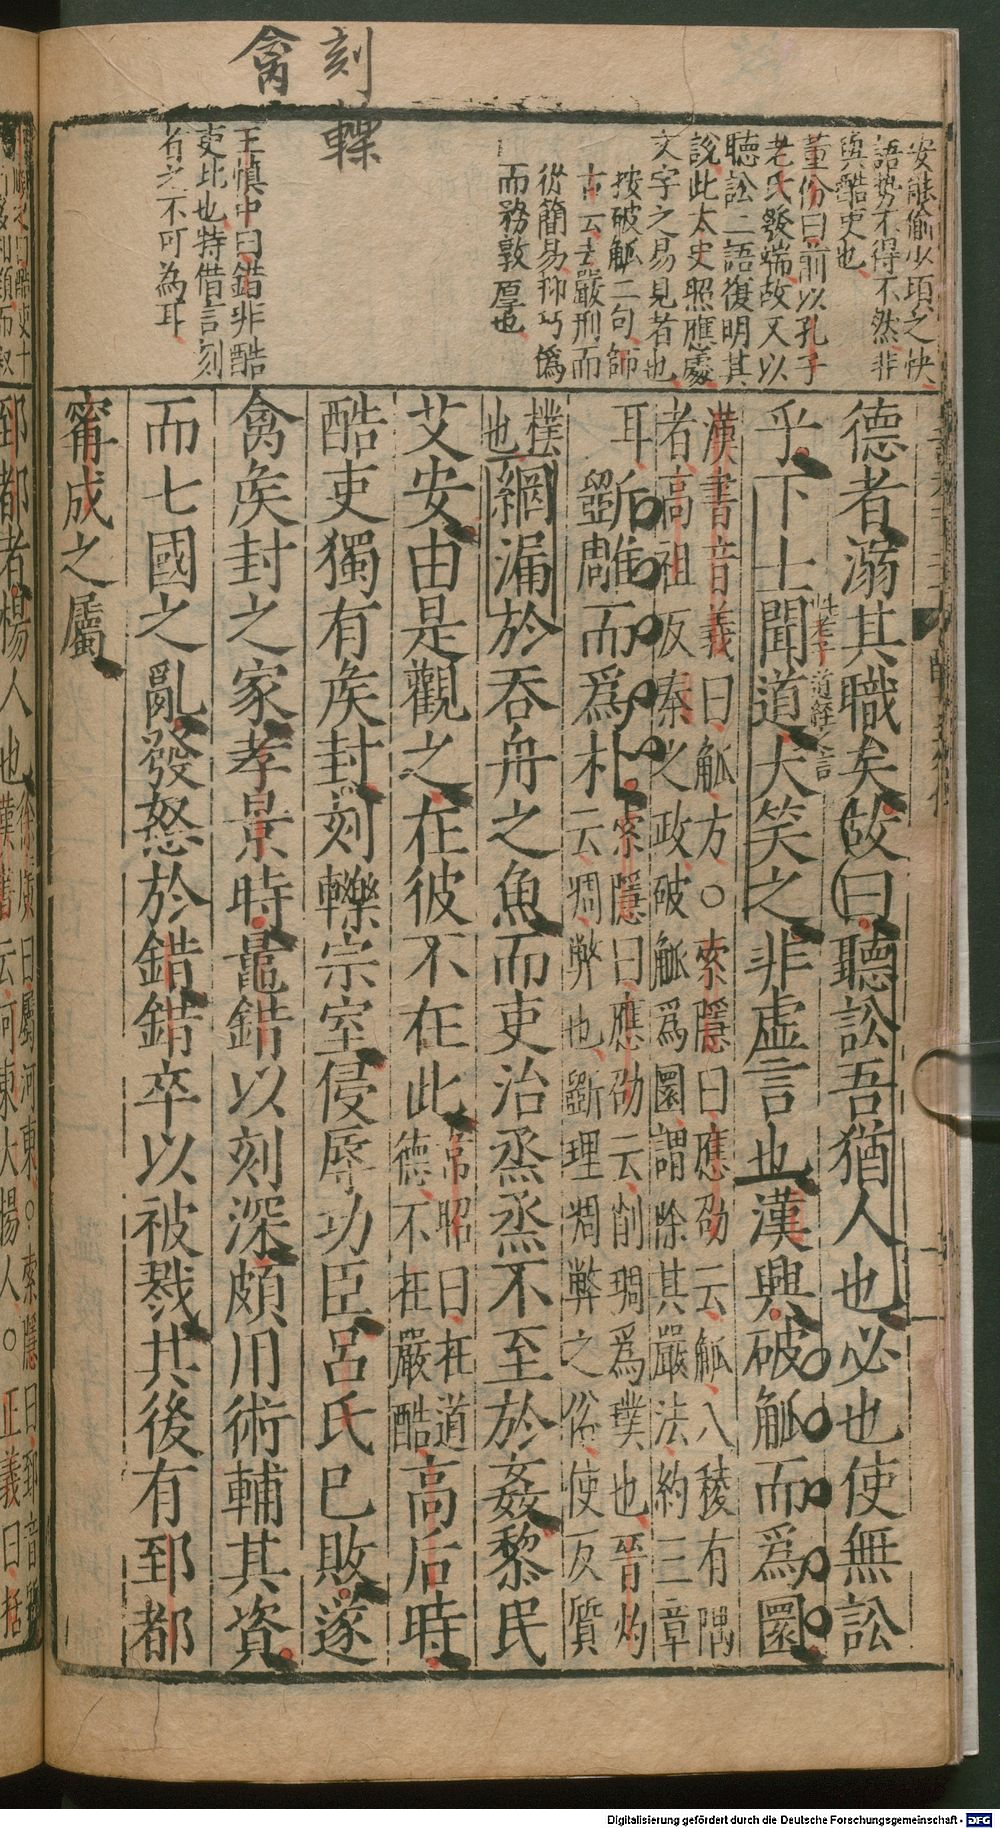 刻轢
禽
安能偷少須之快
語勢不得不然非
與酷吏也
董份曰前以孔子
老氏發端故又以
聽訟二語復明其
說此太史照應處
文字之易見者也
按破觚二句師
古云去嚴刑而
從簡易抑巧偽
而務敦厚也
王慎中曰錯非酷
吏比也特借言刻
者之不可為耳
德者溺其職矣故曰聽訟吾猶人也必也使無訟
乎下士聞道大笑之非虛言也漢興破觚而爲圜
老子道經之言
漢書音義曰觚方○索隱曰應劭云觚八稜有隅
者高祖反秦之政破觚爲圜謂除其嚴法約三章
耳斲雕而爲朴索隱曰應劭云削琱爲璞也晉灼
云凋弊也斲理凋弊之俗使反質
樸也網漏於吞舟之魚而吏治烝烝不至於姦黎民
艾安由是觀之在彼不在此韋昭曰在道德不在嚴酷高后時
酷吏獨有矦封刻轢宗室侵辱功臣呂氏已敗遂
禽矦封之家孝景時鼂錯以刻深頗用術輔其資
而七國之亂發怒於錯錯卒以被戮其後有郅都
甯成之屬
郅都者楊人也徐廣曰屬河東○索隱曰郅音質
漢書云河東大楊人○正義曰括
Digitalisierung gefördert durch die Deutsche Forschungsgemeinschaft - DFG